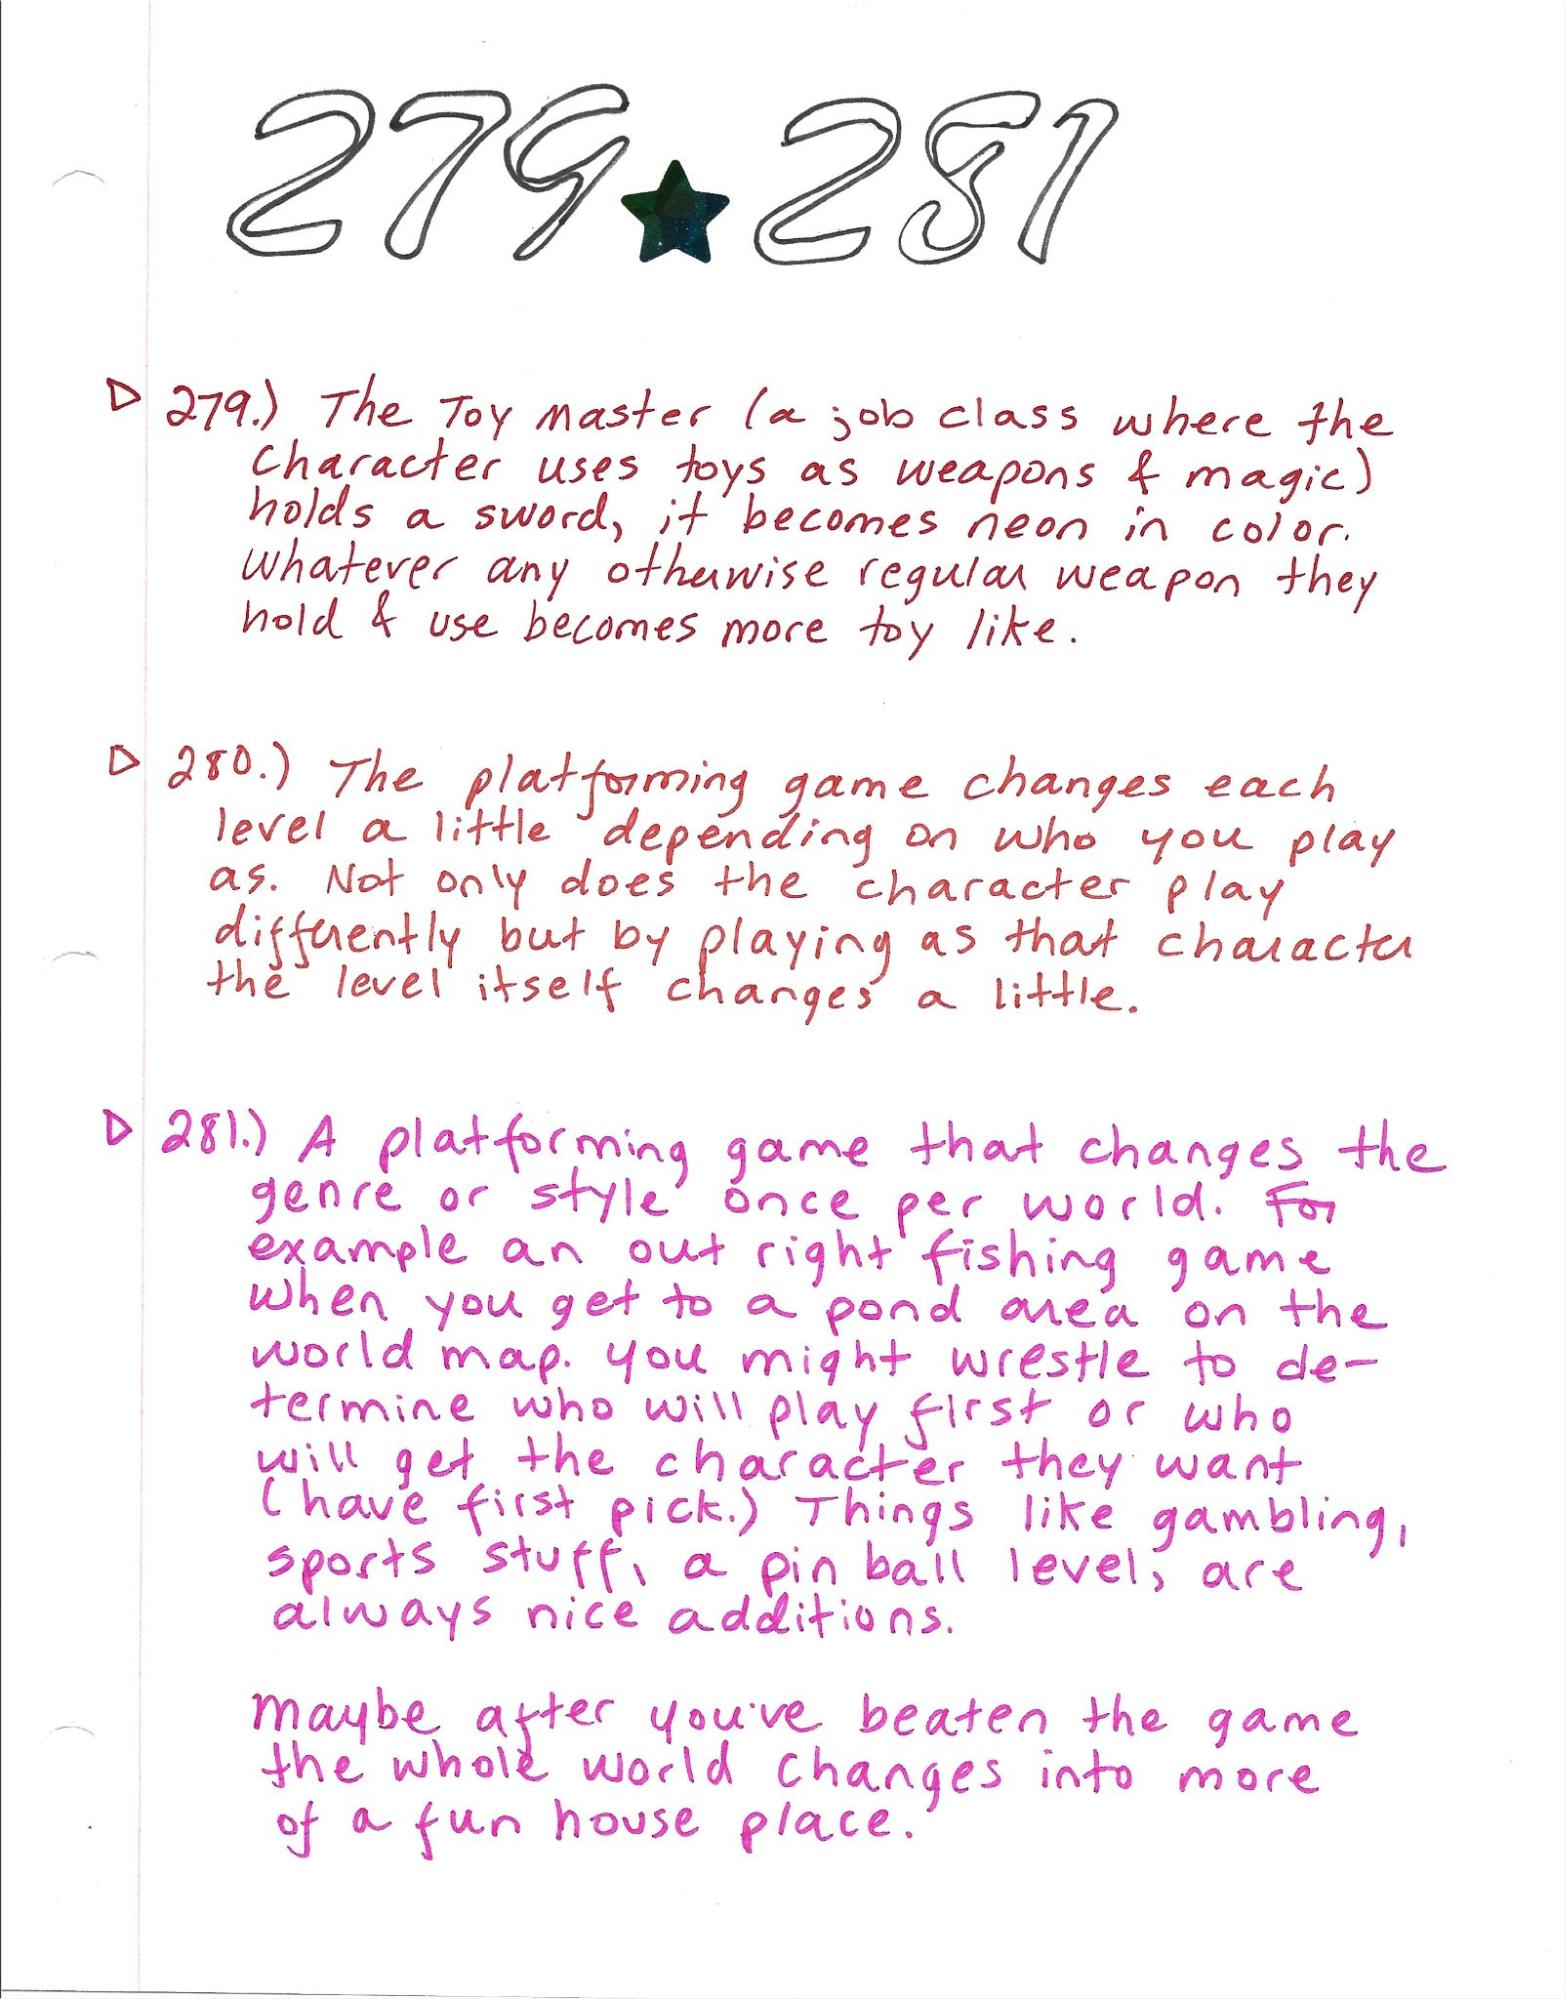 279 ★ 281
▷ 279.) The Toy Master (a job class where the
character uses toys as weapons & magic)
holds a sword, it becomes neon in color.
Whatever any otherwise regular weapon they
hold & use becomes more toy like.
▷ 280.) The platforming game changes each
level a little depending on who you play
as. Not only does the character play
differently but by playing as that character
the level itself changes a little.
▷ 281.) A platforming game that changes the
genre or style once per world. For
example an out right fishing game
when you get to a pond area on the
world map. You might wrestle to de-
termine who will play first or who
will get the character they want
(have first pick.) Things like gambling,
sports stuff, a pin ball level, are
always nice additions.
Maybe after you've beaten the game
the whole world changes into more
of a fun house place.